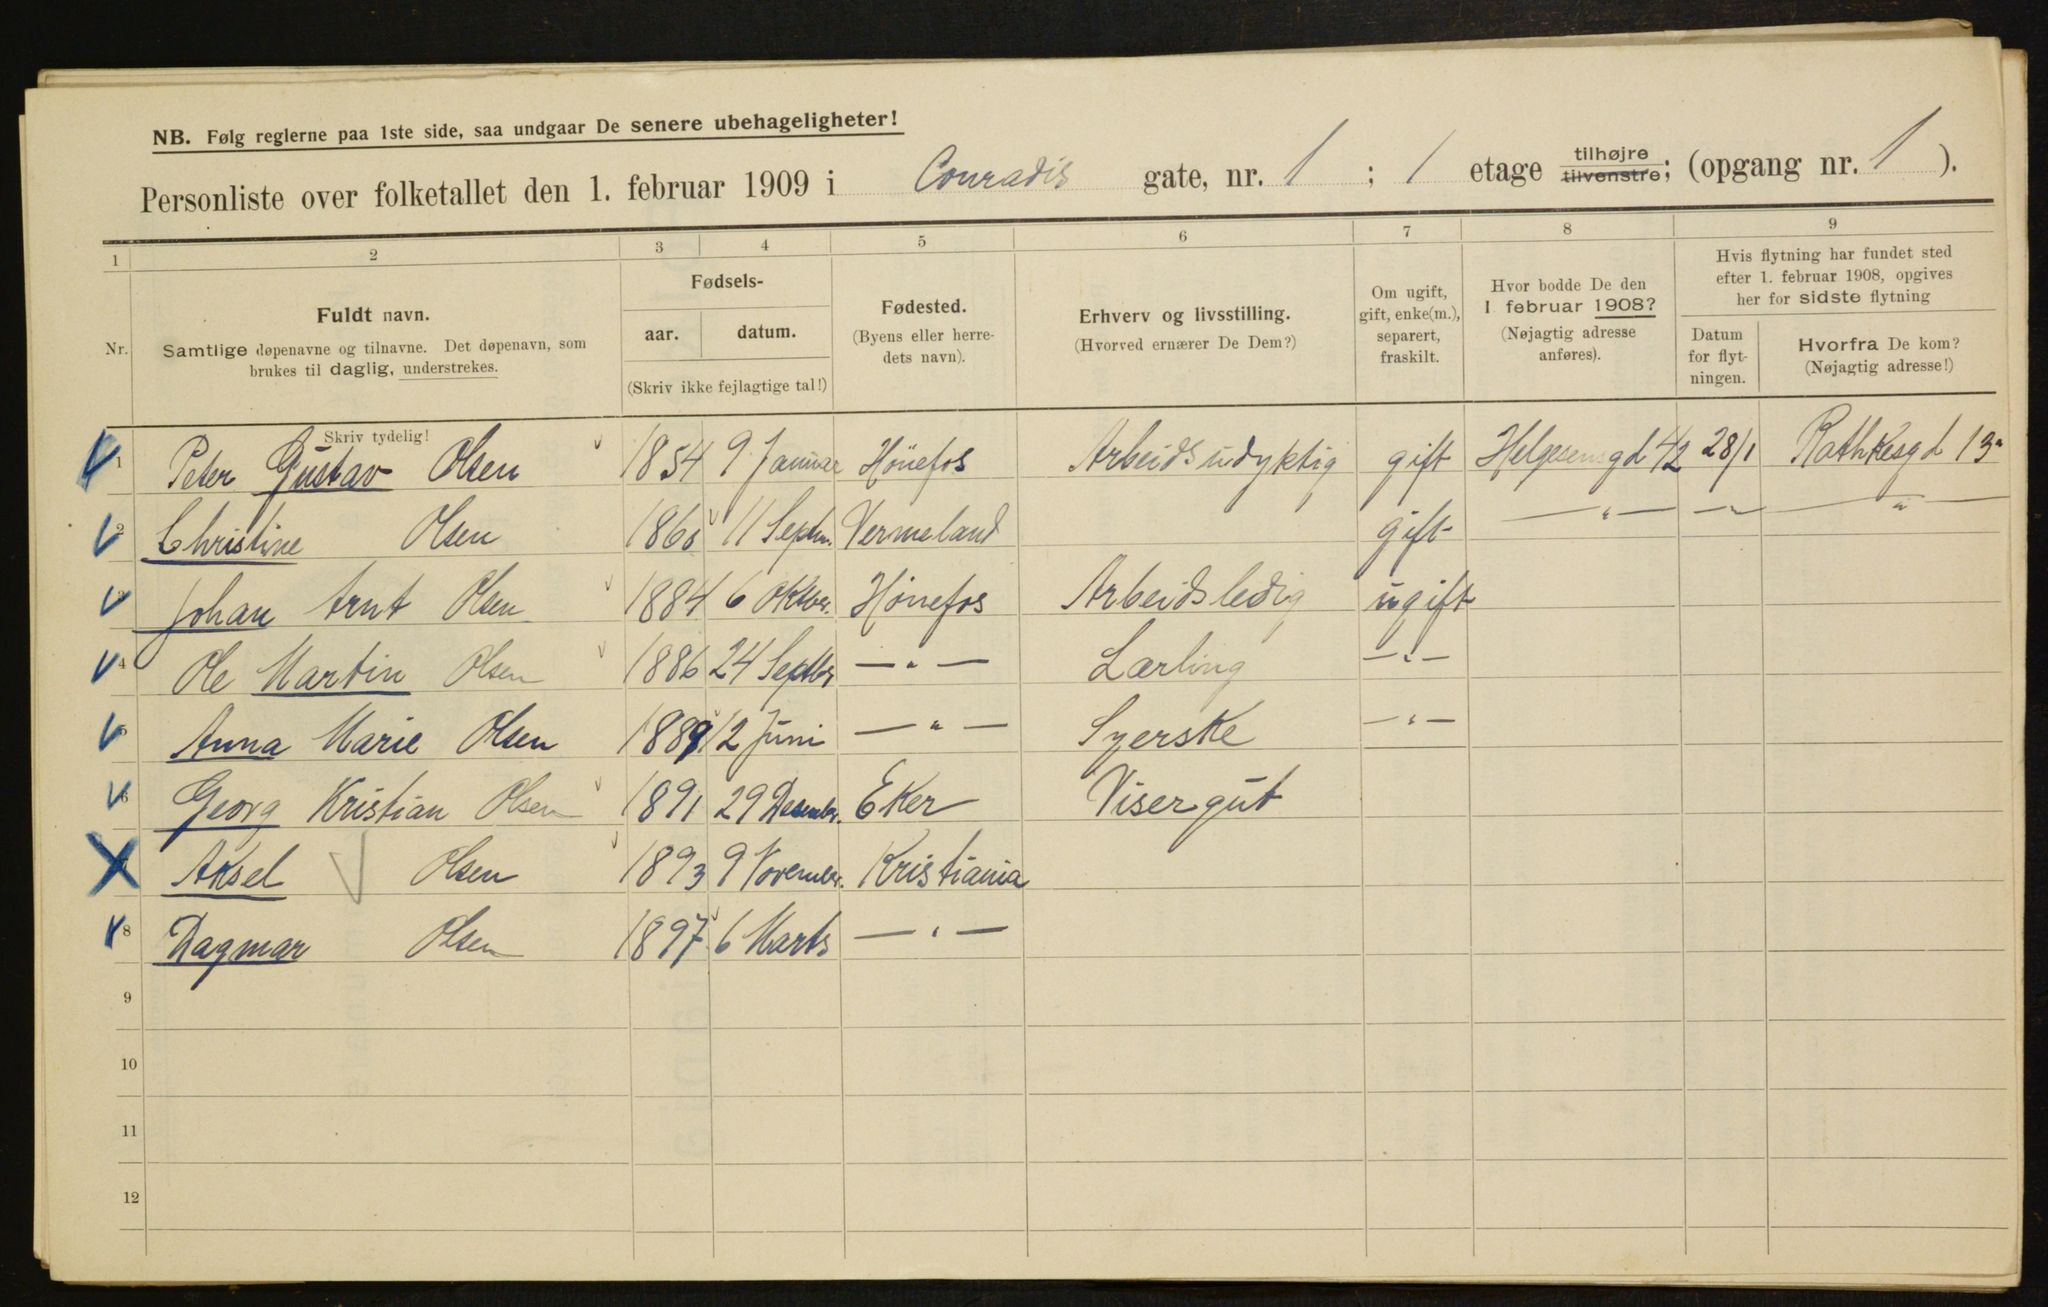 NB. Følg reglerne paa 1ste side, saa undgaar De senere ubehageligheter!
Personliste over folketallet den 1. februar 1909 i Conradis gate, nr. 1 ; 1 etage tilhøjre tilvenstre; (opgang nr. 1 ).
1 2 3 4 5 6 7 8 9
Nr.
Fuldt navn.
Samtlige døpenavne og tilnavne. Det døpenavn, som
brukes til daglig, understrekes.
Skriv tydelig!
Fødsels-
aar. datum.
(Skriv ikke fejlagtige tal!)
Fødested.
(Byens eller herre-
dets navn).
Erhverv og livsstilling.
(Hvorved ernærer De Dem?)
Om ugift,
gift, enke(m.),
separert,
fraskilt.
Hvor bodde De den
1 februar 1908?
(Nøjagtig adresse
anføres).
Hvis flytning har fundet sted
efter 1. februar 1908, opgives
her for sidste flytning
Datum
for flyt-
ningen.
Hvorfra De kom?
(Nøjagtig adresse!)
1 Peter Gustav Olsen 1854 9 Januar Hönefos Arbeidsudyktig gift Helgesensgd 42 28/1 Rathkesgd 13
2 Christine Olsen 11 Septm. Vermeland gift — " — — " — — " —
3 Johan Arnt Olsen 1884 6 Oktbr. Hönefos Arbeidsledig ugift
4 Ole Martin Olsen 1886 24 Septbr — " — Lærling — " —
5 Anna Marie Olsen 1889 12 Juni — " — Syerske — " —
6 Georg Kristian Olsen 1891 29 Desembr. Eker Visergut
7 Aksel Olsen 1893 9 Novembr. Kristiania
8 Dagmar Olsen 1897 6 Marts — " —
9
10
11
12